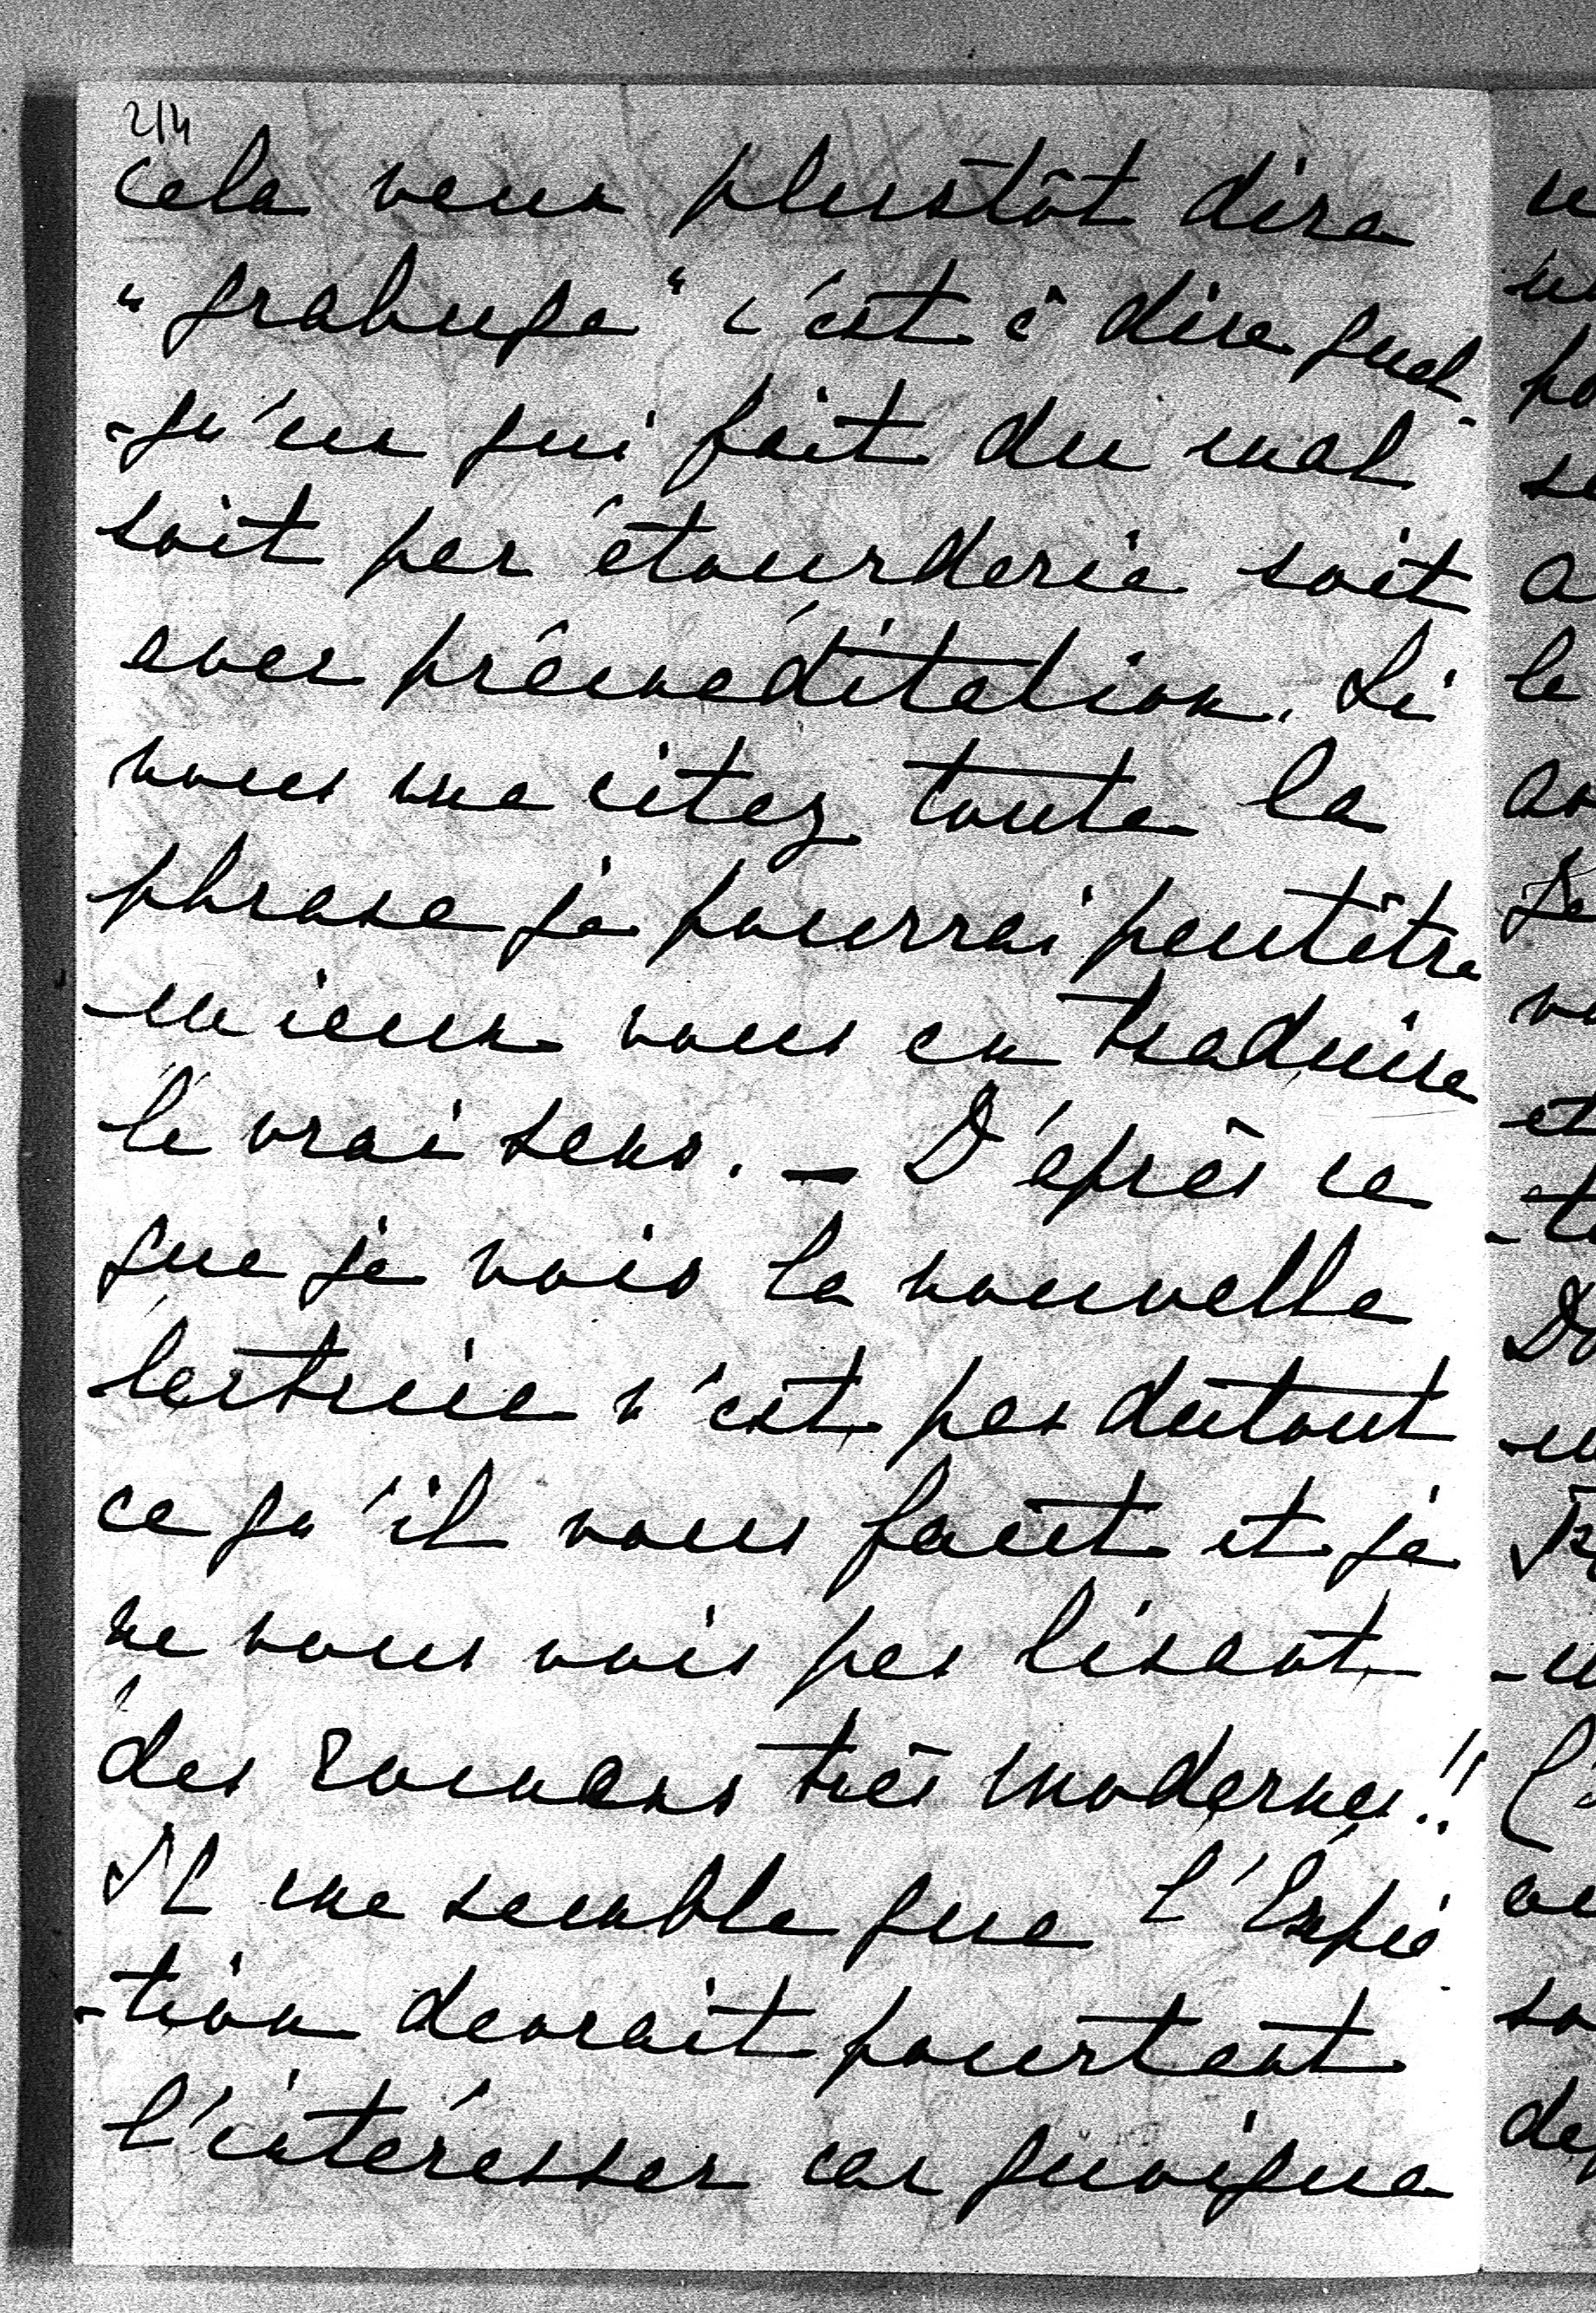 214
cela veux plustôt dire
"grabuge" c'est à dire quel-
-qu'un qui fait du mal
soit par étourderie soit
avec préméditation. Si
vous me citez toute la
phrase je pourrai peutêtre
mieux vous en traduire
le vrai sens. — D'après ce
que je vois la nouvelle
lectrice n'est pas dutout
ce qu'il vous faût et je
ne vous vois pas lisant
des romans très modernes!!
Il me semble que l'Expia
-tion devrait pourtant
l'intéresser car quoique